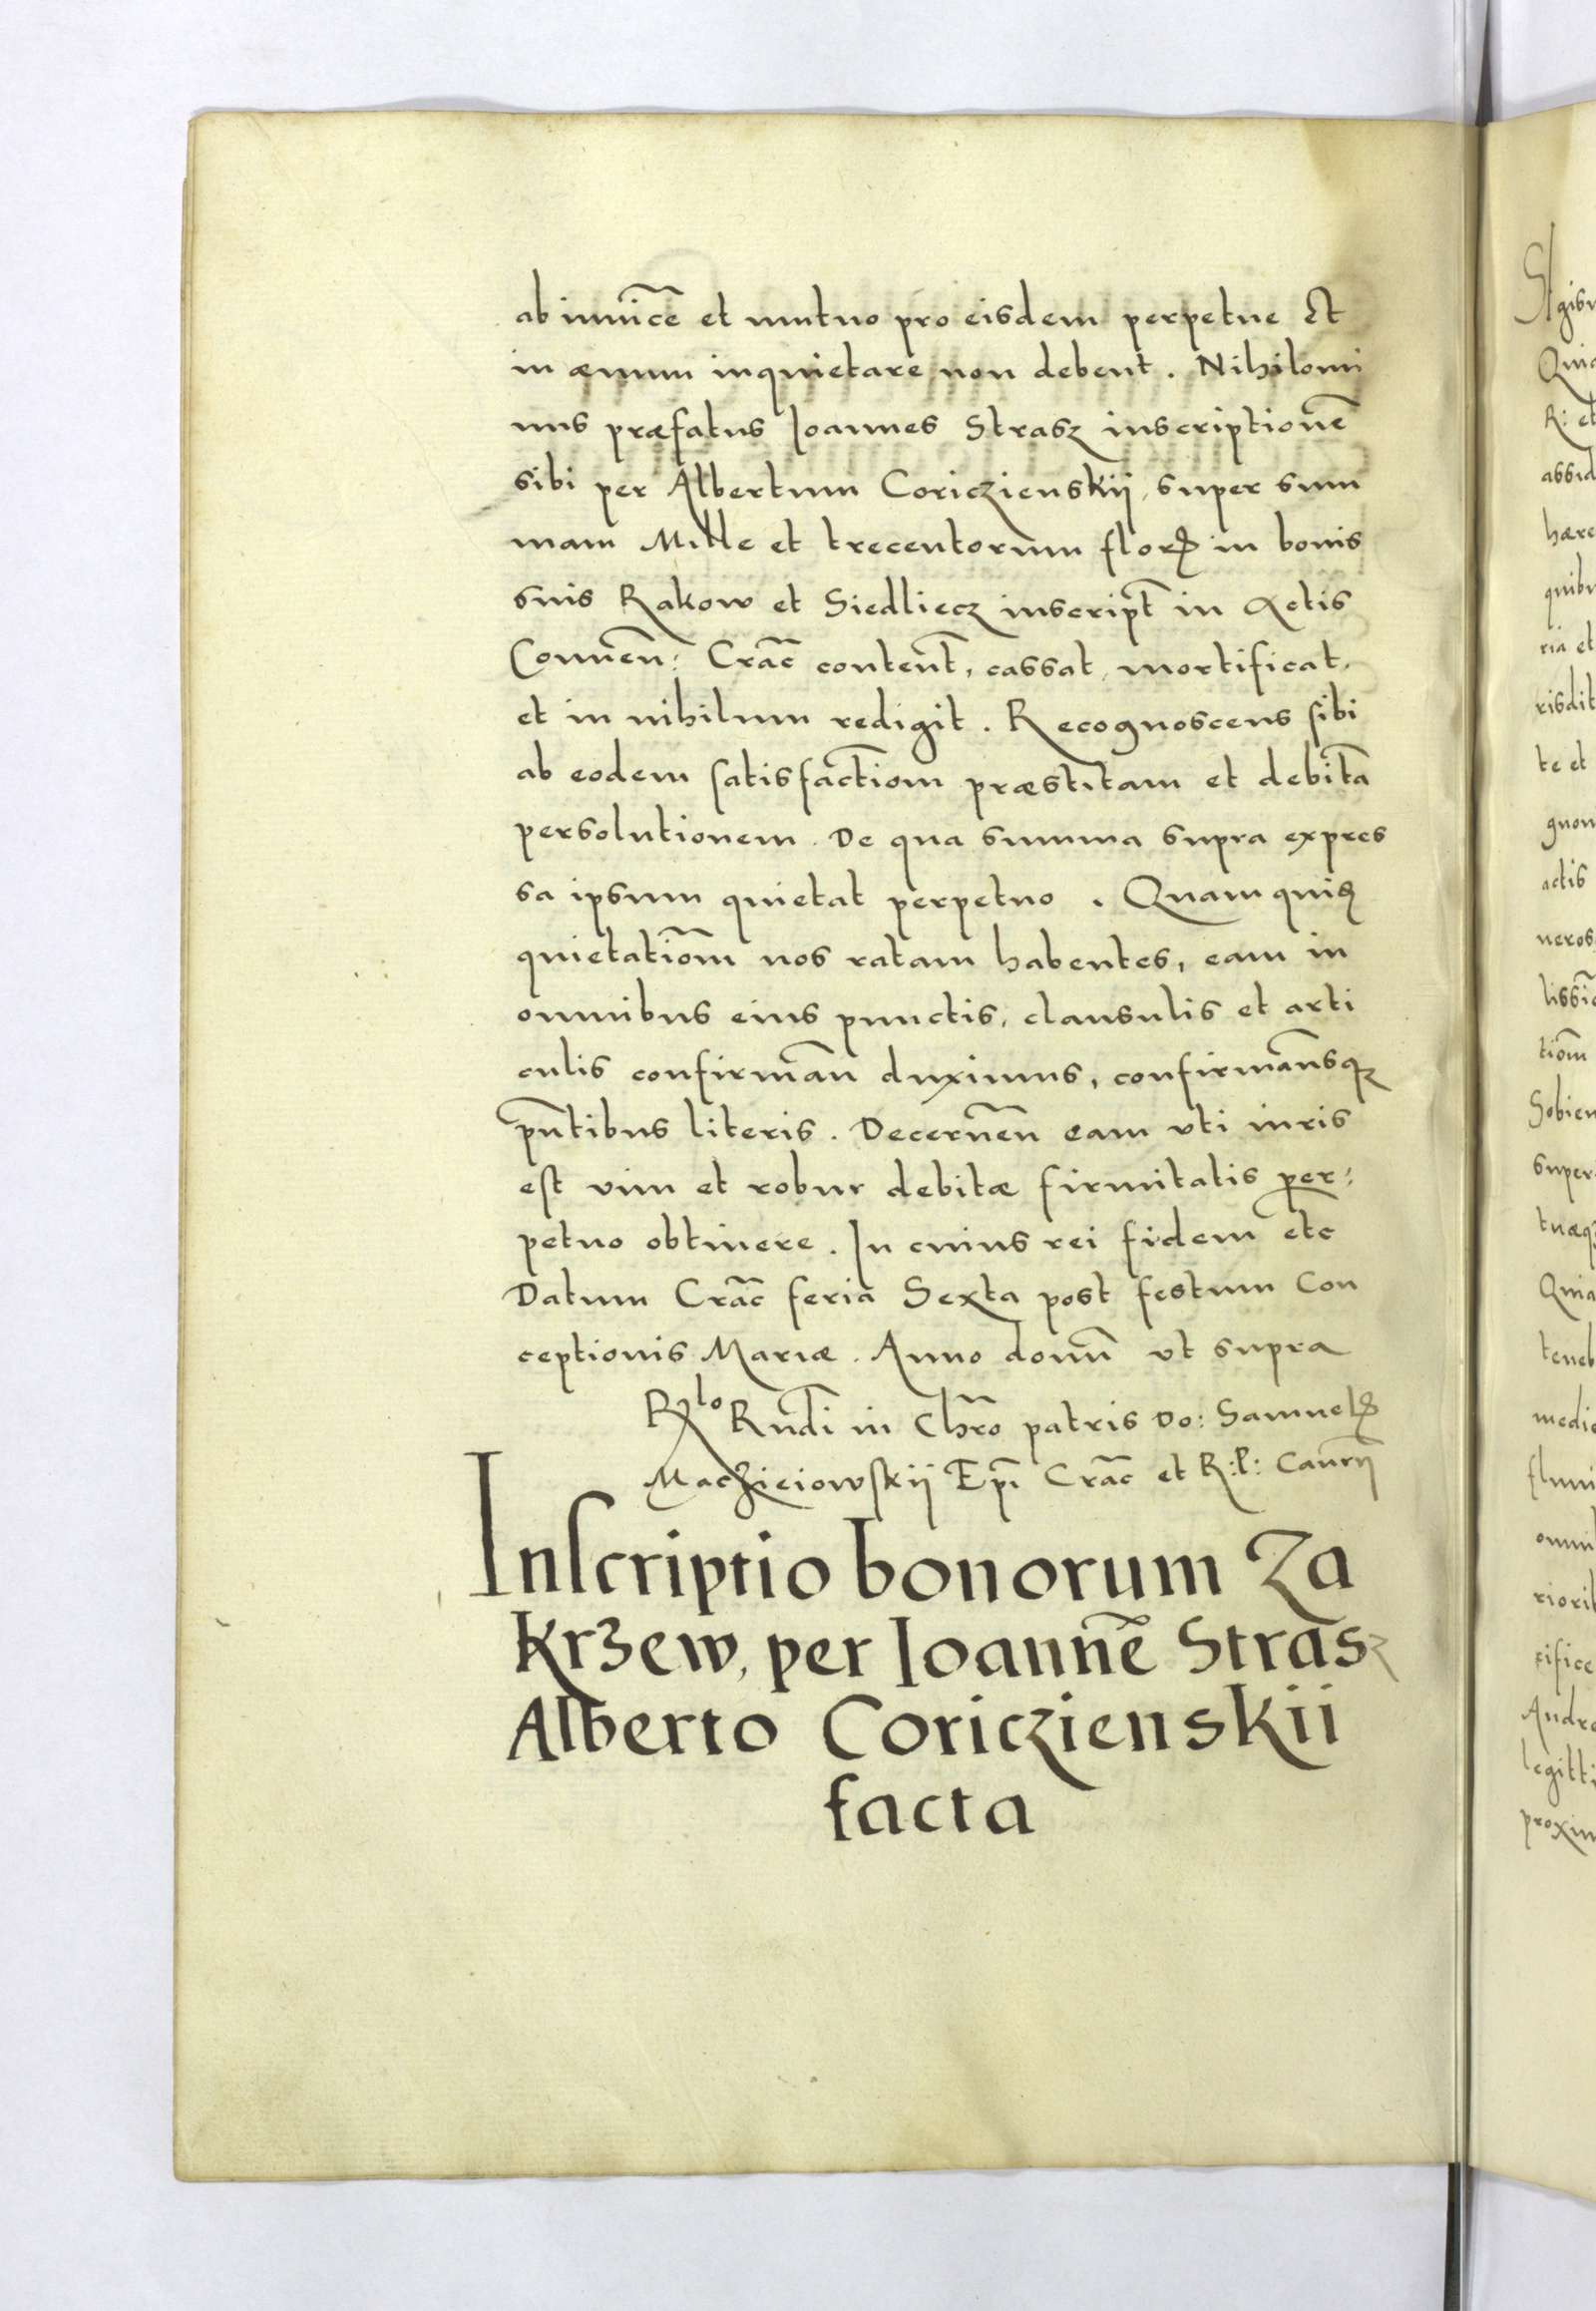 ab inuicē et mutuo pro eisdem perpetue Et
in æuum inquietare non debent. Nihilomi
nus præfatus Ioannes Strasz inscriptionē
sibi per Albertum Coriczienskij, super sum
mam Mille et trecentorum flor in bonis
suis Rakow et Siedliecz inscript̄ in Actis
Conuen̄: Crac̄ content̄, cassat, mortificat,
et in nihilum redigit. Recognoscens sibi
ab eodem satisfactiom̄ præstitam et debitā
persolutionem. De qua summa supra expres
sa ipsum quietat perpetuo. Quam quid
quietatiom̄ nos ratam habentes, eam in
omnibus eius punctis, clausulis et arti
culis confirman̄ duximus, confirmamusqȝ
pn̄tibus literis. Decernen̄ eam vti iuris
est vim et robur debitæ firmitatis per:
petuo obtinere. In cuius rei fidem etc̄
Datum Crac̄ feria Sexta post festum Con
ceptionis Mariæ. Anno domn̄ vt supra
Rlo Rndi in Chr̄o patris Do: Samuel
Maczieiowskij Ep̄i Crac̄ et R: P: Can̄rij
Inscriptio bonorum Za
krzew, per Ioannē Strasz
Alberto Coriczienskii
facta
Quia
R: et
quibu
ria et
te et
actis
Sobien
super
Quia
teneb
medie
Andre
legitti
proxim